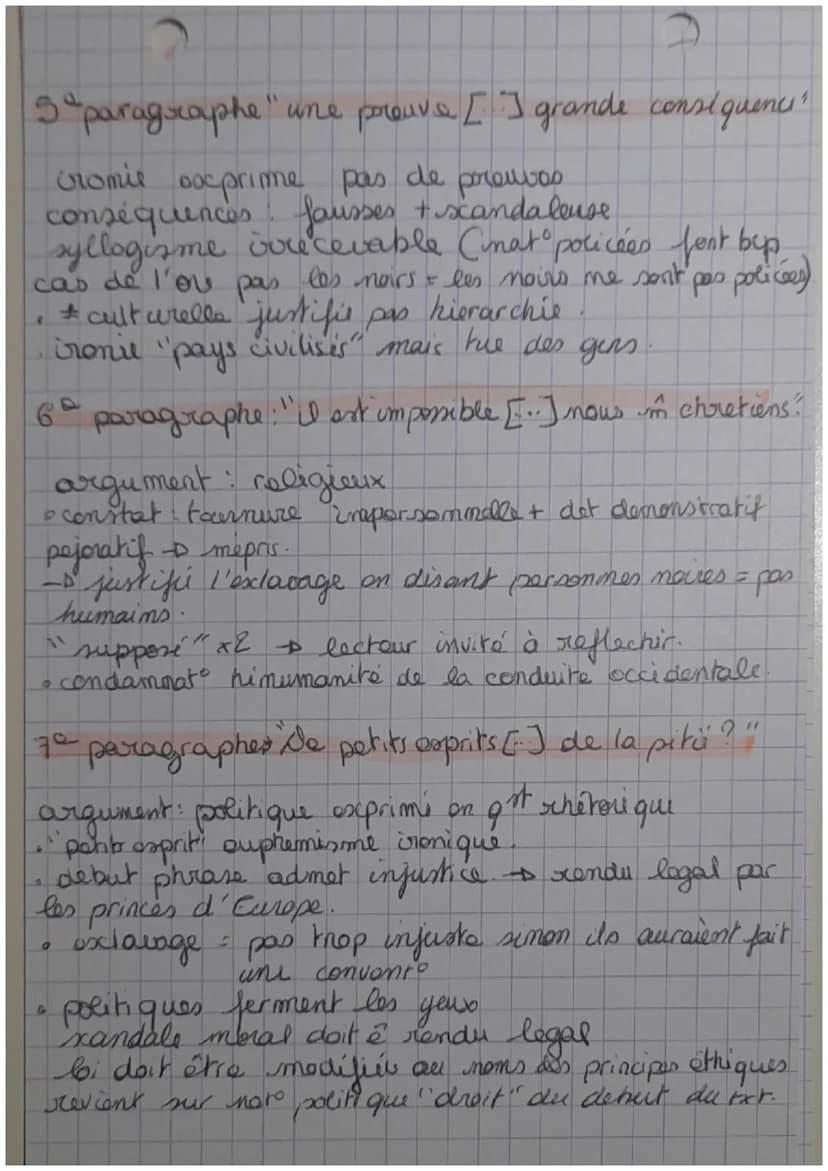 5e paragraphe "une preuve [...] grande conséquence"
ironie exprime pas de preuves
conséquences : fausses + scandaleuse
syllogisme irrecevable (nat° policées font bcp
cas de l'or pas les noirs = les noirs ne sont pas policées)
. ≠ culturelle justifie pas hierarchie.
. ironie "pays civilisés" mais tue des gens.
6e paragraphe : "il est impossible [...] nous m̂ chretiens"
argument : religieux
• constat : tournure impersonnelle + det demonstratif
pejoratif → mépris.
→ justifie l'esclavage en disant personnes noires = pas
humains.
"supposé" x2 → lecteur invité à reflechir.
• condamnat° hinumanité de la conduite occidentale.
7e paragraphe "De petits esprits [...] de la pitié ?"
argument : politique exprimé en qst rhétorique
. "petits esprit" euphemisme ironique.
. debut phrase admet injustice → rendu legal par
les princes d'Europe.
• esclavage = pas trop injuste sinon ils auraient fait
une convent°
• politiques ferment les yeux
scandale moral doit ê rendu legal
loi doit être modifiée au noms des principes éthiques
revient sur not° politique "droit" du debut du txt.